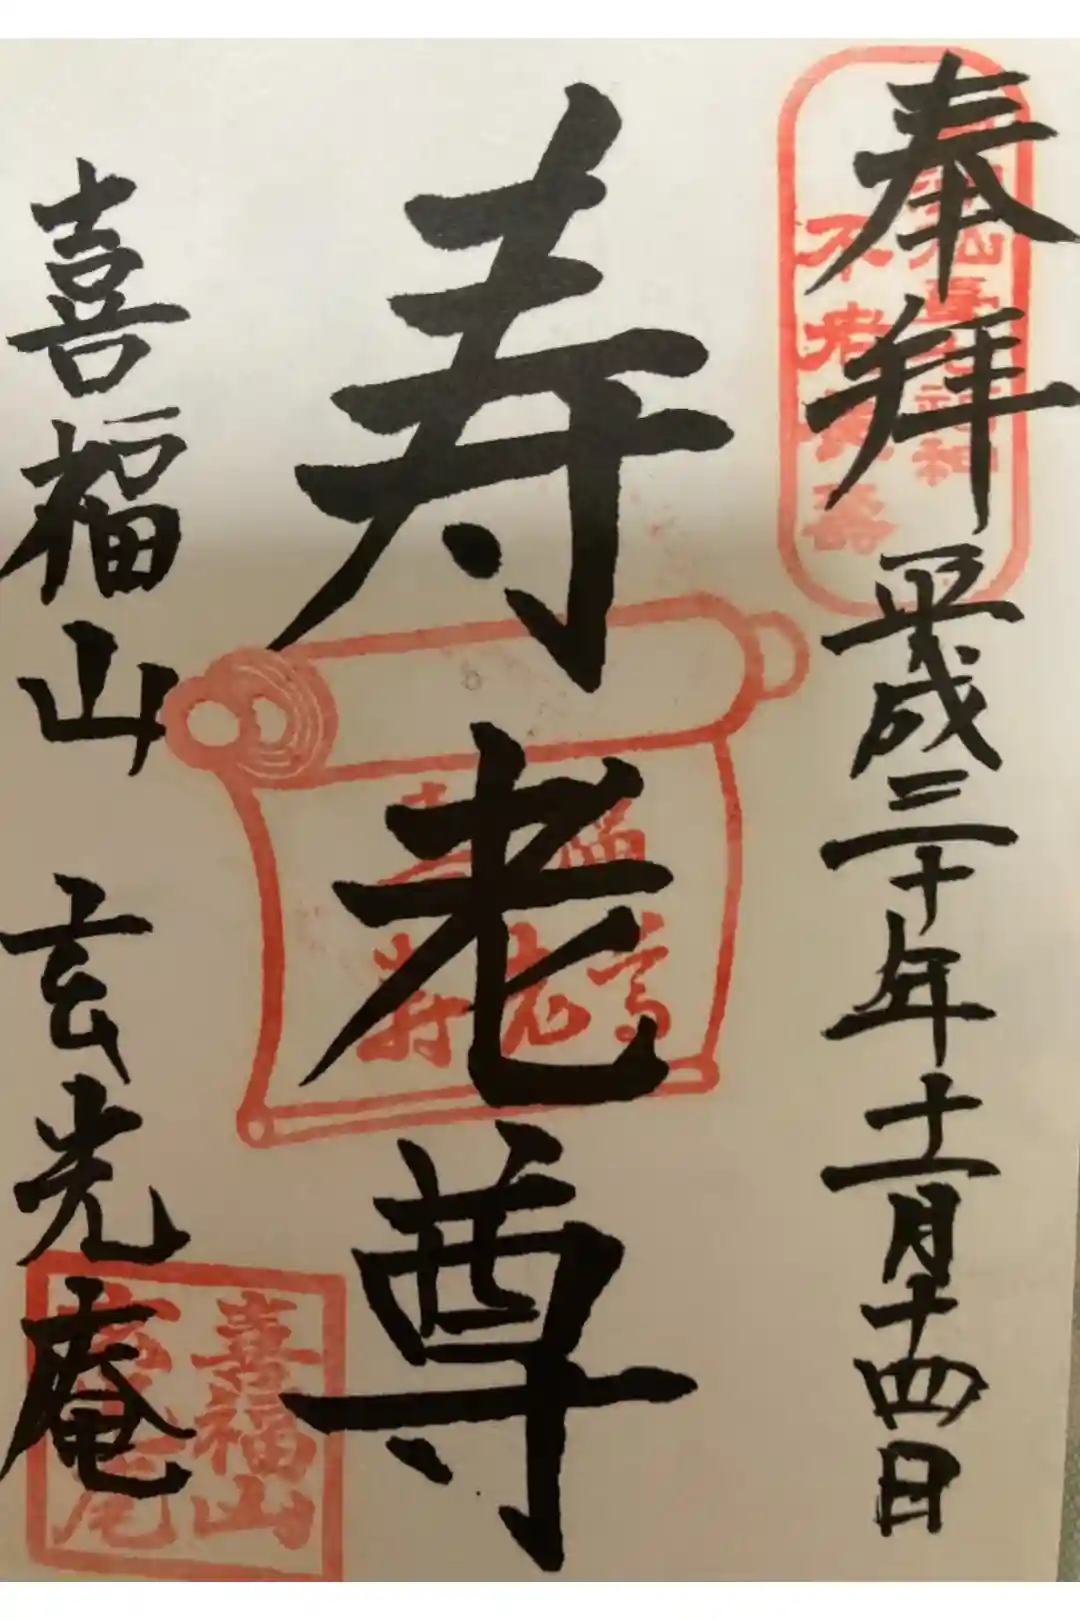 奉拝
平成三十年十一月十四日
寿老尊
喜福山 玄光庵
不老長壽
喜福山